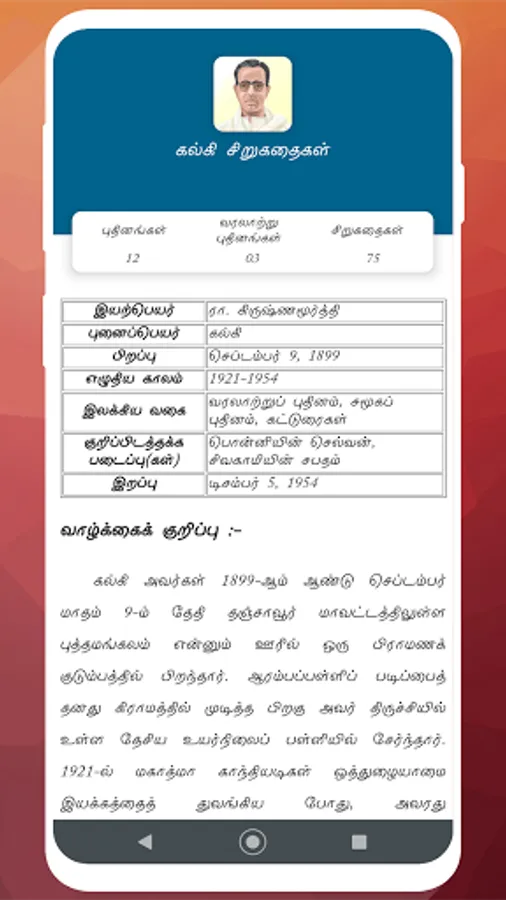 கல்கி சிறுகதைகள்
புதினங்கள்
வரலாற்று
புதினங்கள்
சிறுகதைகள்
12
03
75
இயற்பெயர் ரா. கிருஷ்ணமூர்த்தி
புனைப்பெயர் கல்கி
பிறப்பு செப்டம்பர் 9, 1899
எழுதிய காலம் 1921-1954
இலக்கிய வகை வரலாற்றுப் புதினம், சமூகப்
புதினம், கட்டுரைகள்
குறிப்பிடத்தக்க பொன்னியின் செல்வன்,
படைப்பு(கள்) சிவகாமியின் சபதம்
இறப்பு டிசம்பர் 5, 1954
வாழ்க்கைக் குறிப்பு :-
கல்கி அவர்கள் 1899-ஆம் ஆண்டு செப்டம்பர்
மாதம் 9-ம் தேதி தஞ்சாவூர் மாவட்டத்திலுள்ள
புத்தமங்கலம் என்னும் ஊரில் ஒரு பிராமணக்
குடும்பத்தில் பிறந்தார். ஆரம்பப்பள்ளிப் படிப்பைத்
தனது கிராமத்தில் முடித்த பிறகு அவர் திருச்சியில்
உள்ள தேசிய உயர்நிலைப் பள்ளியில் சேர்ந்தார்.
1921-ல் மகாத்மா காந்தியடிகள் ஒத்துழையாமை
இயக்கத்தைத் துவங்கிய போது, அவரது